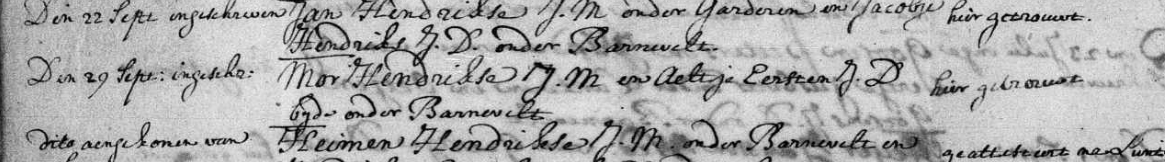 Den 22 Sept ingeschreven Jan Hendrikse J. M onder Garderen en Jacobje hier getrouwt.
Hendriks J. D. onder Barnevelt.
Den 29 Sept: ingeschr: Mor Hendrikse J. M en Aeltje Eersten J. D hier getrouwt
byde onder Barnevelt
dito aengekomen van Heimen Hendrikse J. M. onder Barnevelt en geattesteert na Lunt